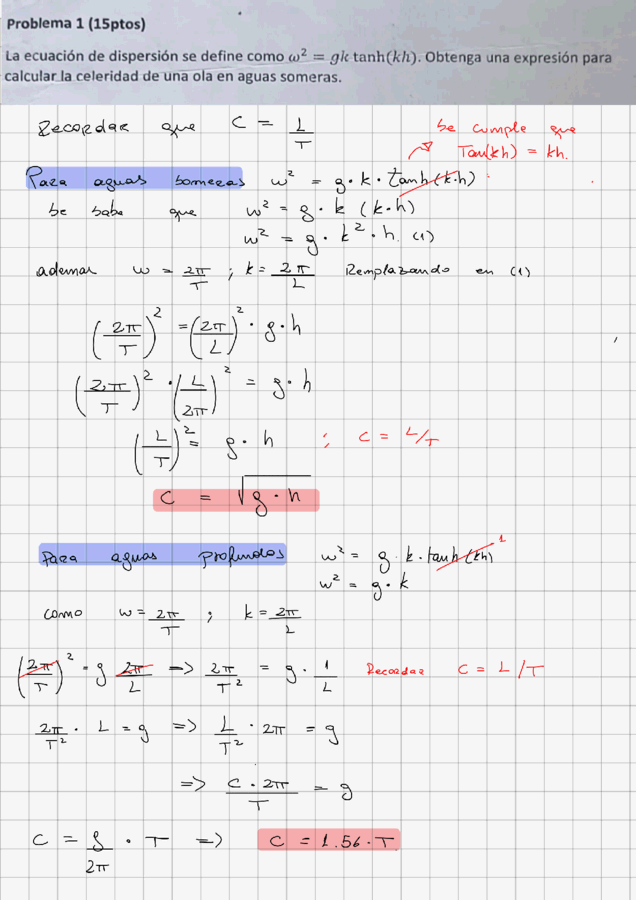 Problema 1 (15ptos)
La ecuación de dispersión se define como ω² = gk tanh(kh). Obtenga una expresión para
calcular la celeridad de una ola en aguas someras.
Recordar que C = L/T
se cumple que
Tan(kh) = kh.
Para aguas someras ω² = g·k·tanh(k·h)
se sabe que ω² = g·k (k·h)
ω² = g·k²·h. (1)
ademas ω = 2π/T ; k = 2π/L Remplazando en (1)
(2π/T)² = (2π/L)² · g·h
(2π/T)² · (L/2π)² = g·h
(L/T)² = g·h ; C = L/T
C = √g·h
Para aguas profundos ω² = g·k·tanh(kh) 1
ω² = g·k
como ω = 2π/T ; k = 2π/L
(2π/T)² = g 2π/L => 2π/T² = g · 1/L Recordar C = L/T
2π/T² · L = g => L/T² · 2π = g
=> C·2π/T = g
C = g/2π · T => C = 1.56·T